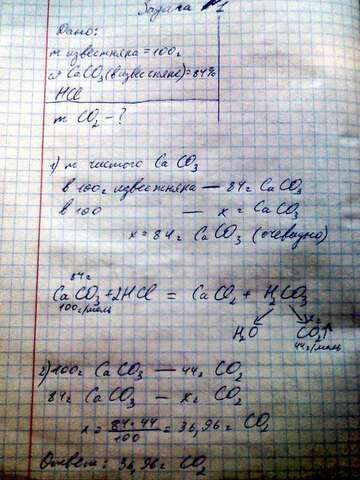 Задача №1
Дано:
m известняка = 100г
ω CaCO3 (в известняке) = 84%
HCl
m CO2 - ?
1) m чистого CaCO3
в 100г известняка — 84г CaCO3
в 100 — x г CaCO3
x = 84г CaCO3 (очевидно)
84г
CaCO3 + 2HCl = CaCO2 + H2CO3
100г/моль
x г
H2O CO2↑
44г/моль
2) 100г CaCO3 — 44г CO2
84г CaCO3 — x г CO2
x = 84*44/100 = 36,96г CO2
Ответ: 36,96г CO2